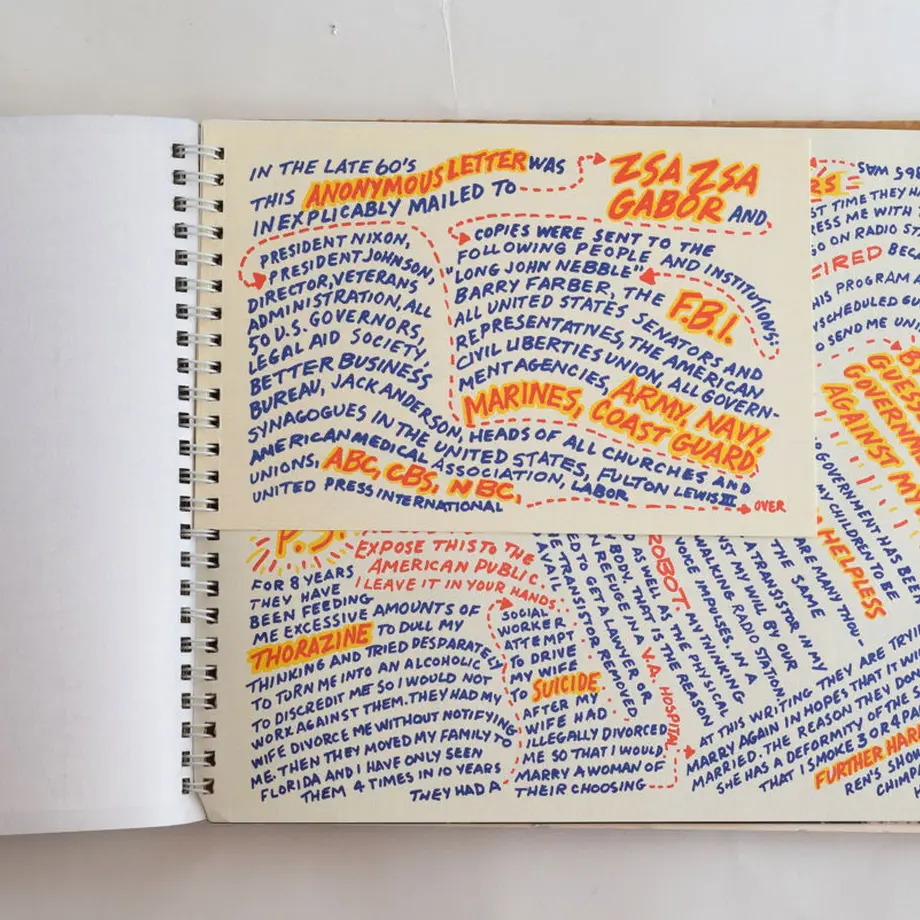 IN THE LATE 60'S
THIS ANONYMOUS LETTER WAS
INEXPLICABLY MAILED TO
ZSA ZSA
GABOR AND
PRESIDENT NIXON,
PRESIDENT JOHNSON,
DIRECTOR, VETERANS
ADMINISTRATION, ALL
50 U.S. GOVERNORS,
LEGAL AID SOCIETY,
BETTER BUSINESS
BUREAU, JACK ANDERSON, HEADS OF ALL CHURCHES AND
SYNAGOGUES IN THE UNITED STATES, FULTON LEWIS III
AMERICAN MEDICAL ASSOCIATION, LABOR
UNIONS, ABC, CBS, NBC,
UNITED PRESS INTERNATIONAL
COPIES WERE SENT TO THE
FOLLOWING PEOPLE AND INSTITUTIONS:
"LONG JOHN NEBBLE"
BARRY FARBER, THE F.B.I.
ALL UNITED STATES SENATORS AND
REPRESENTATIVES, THE AMERICAN
CIVIL LIBERTIES UNION, ALL GOVERN-
MENT AGENCIES, ARMY, NAVY,
MARINES, COAST GUARD.
OVER
P.S.
EXPOSE THIS TO THE
AMERICAN PUBLIC.
I LEAVE IT IN YOUR HANDS.
FOR 8 YEARS
THEY HAVE
BEEN FEEDING
ME EXCESSIVE AMOUNTS OF
THORAZINE TO DULL MY
THINKING AND TRIED DESPARATELY
TO TURN ME INTO AN ALCOHOLIC
TO DISCREDIT ME SO I WOULD NOT
WORK AGAINST THEM. THEY HAD MY
WIFE DIVORCE ME WITHOUT NOTIFYING
ME. THEN THEY MOVED MY FAMILY TO
FLORIDA AND I HAVE ONLY SEEN
THEM 4 TIMES IN 10 YEARS
THEY HAD A
SOCIAL
WORKER
ATTEMPT
TO DRIVE
MY WIFE
TO SUICIDE
AFTER MY
WIFE HAD
ILLEGALLY DIVORCED
ME SO THAT I WOULD
MARRY A WOMAN OF
THEIR CHOOSING
AT THIS WRITING THEY ARE
MARRY AGAIN IN HOPES THAT IT
MARRIED. THE REASON THEY
SHE HAS A DEFORMITY OF THE
THAT I SMOKE 3 OR 4
FURTHER
TO GET A LAWYER OR
THE TRANSISTOR REMOVED
REFUGE IN A V.A. HOSPITAL
BODY. THAT IS THE REASON
AS WELL AS THE PHYSICAL
ROBOT. MY THINKING
VOICE IMPULSES. IN A
WALKING RADIO STATION
MY WILL BY OUR
A TRANSISTOR IN MY
THE SAME
ARE MANY
HELPLESS
GOVERNMENT HAS BEEN
MY CHILDREN TO BE
WAS
TIME THEY
ME WITH
GO ON RADIO
FIRED
PROGRAM
SEND ME
AGAINST